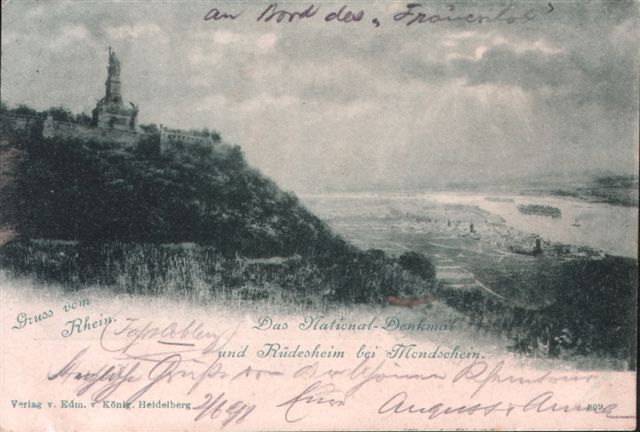 an Bord des „Frauenlob"
Gruss vom
Rhein.
Das National-Denkmal
und Rüdesheim bei Mondschein.
Herzliche Grüße von der schönen Rheintour
Eure August & Anna
Verlag v. Edm. v. König, Heidelberg.
809.